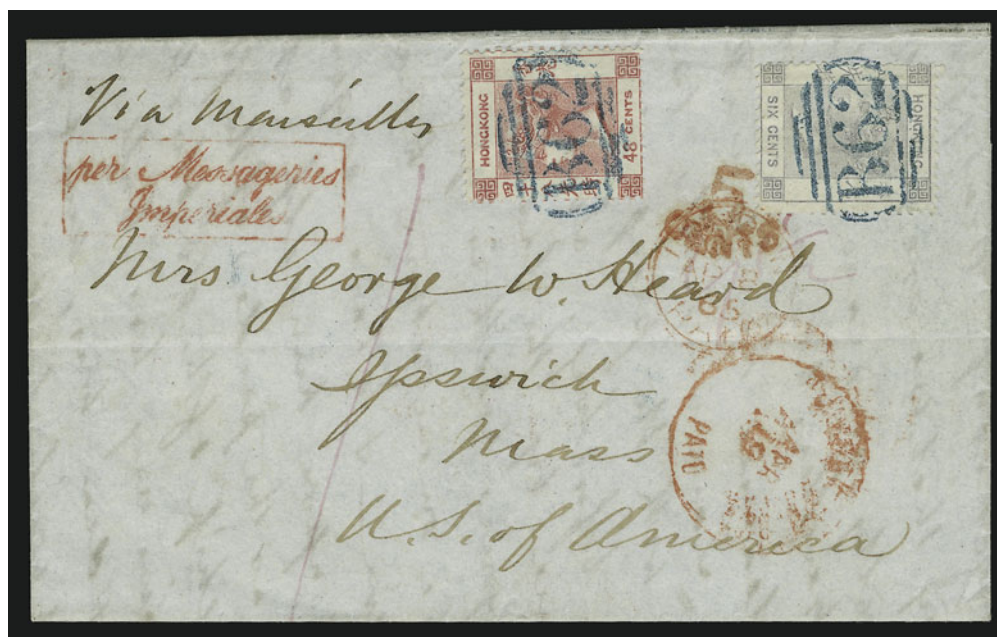 Via Marseilles
per Messageries
Imperiales
HONGKONG
48 CENTS
B62
SIX CENTS
HONGKONG
B62
5
CENTS
Mrs George W. Heard
Ipswich
Mass
U.S. of America
PAID